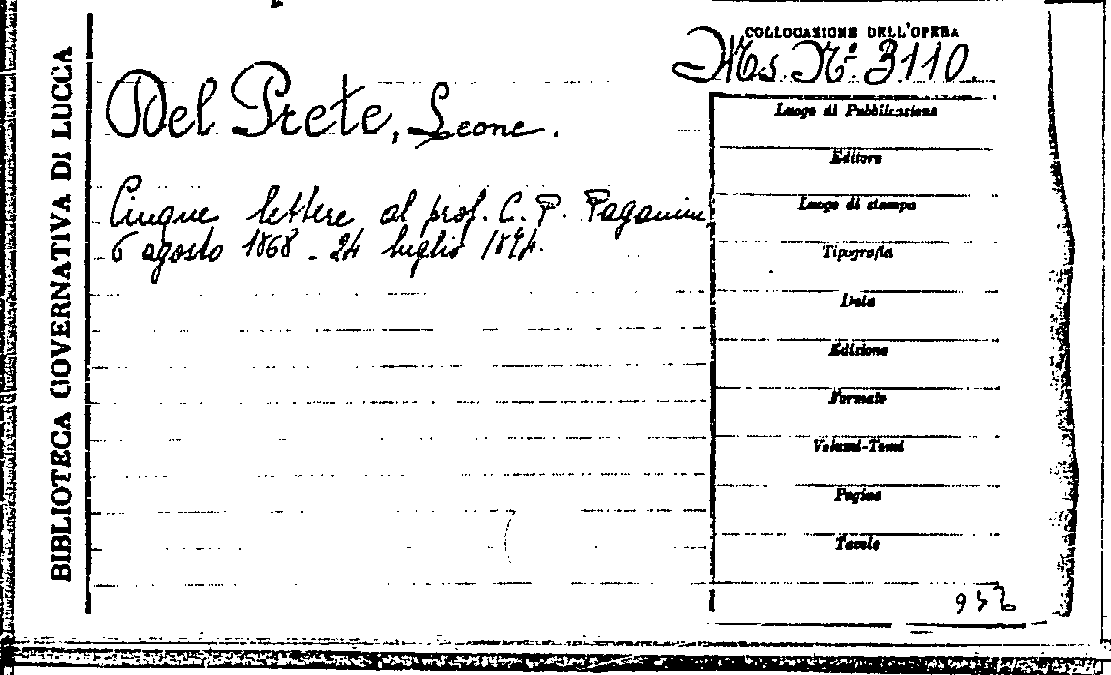 BIBLIOTECA GOVERNATIVA DI LUCCA
COLLOCAZIONE DELL'OPERA
Ms. Nº 3110.
Del Prete, Leone.
Cinque lettere al prof. C. P. Paganini
6 agosto 1868 - 24 luglio
Luogo di Pubblicazione
Editore
Luogo di stampa
Tipografia
Data
Edizione
Formato
Volumi-Tomi
Pagine
Tavole